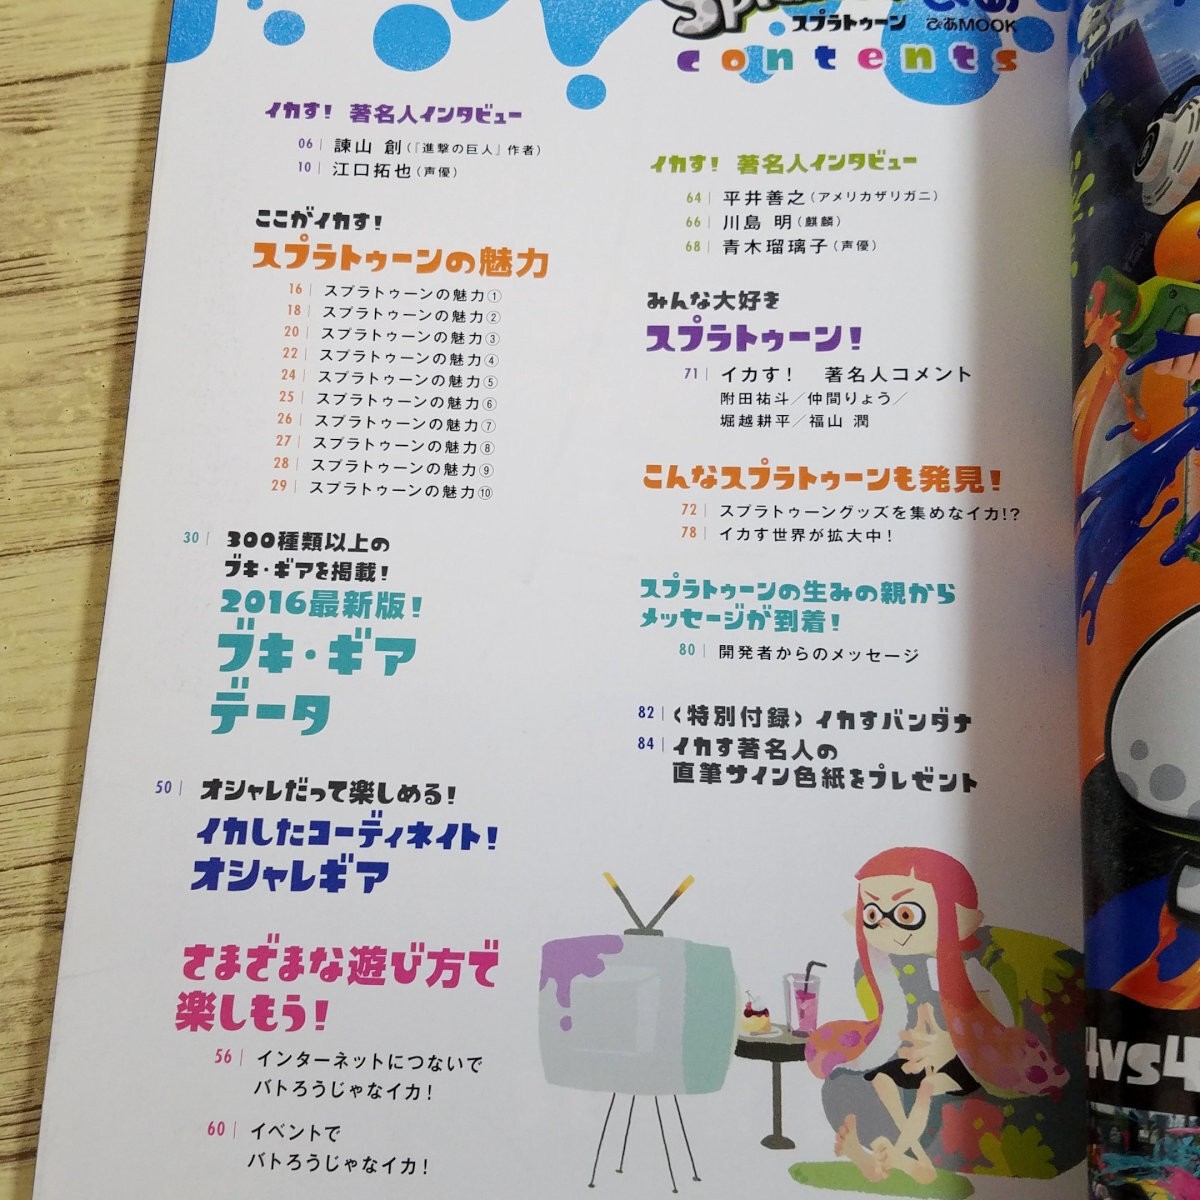 スプラトゥーン ぴあ
ぴあMOOK
contents
イカす! 著名人インタビュー
06 諫山 創(『進撃の巨人』作者)
10 江口拓也(声優)
ここがイカす!
スプラトゥーンの魅力
16 スプラトゥーンの魅力①
18 スプラトゥーンの魅力②
20 スプラトゥーンの魅力③
22 スプラトゥーンの魅力④
24 スプラトゥーンの魅力⑤
25 スプラトゥーンの魅力⑥
26 スプラトゥーンの魅力⑦
27 スプラトゥーンの魅力⑧
28 スプラトゥーンの魅力⑨
29 スプラトゥーンの魅力⑩
30 300種類以上の
ブキ・ギアを掲載!
2016最新版!
ブキ・ギア
データ
50 オシャレだって楽しめる!
イカしたコーディネイト!
オシャレギア
さまざまな遊び方で
楽しもう!
56 インターネットにつないで
バトろうじゃなイカ!
60 イベントで
バトろうじゃなイカ!
イカす! 著名人インタビュー
64 平井善之(アメリカザリガニ)
66 川島 明(麒麟)
68 青木瑠璃子(声優)
みんな大好き
スプラトゥーン!
71 イカす! 著名人コメント
附田祐斗/仲間りょう/
堀越耕平/福山 潤
こんなスプラトゥーンも発見!
72 スプラトゥーングッズを集めなイカ!?
78 イカす世界が拡大中!
スプラトゥーンの生みの親から
メッセージが到着!
80 開発者からのメッセージ
82 〈特別付録〉イカすバンダナ
84 イカす著名人の
直筆サイン色紙をプレゼント
4vs4